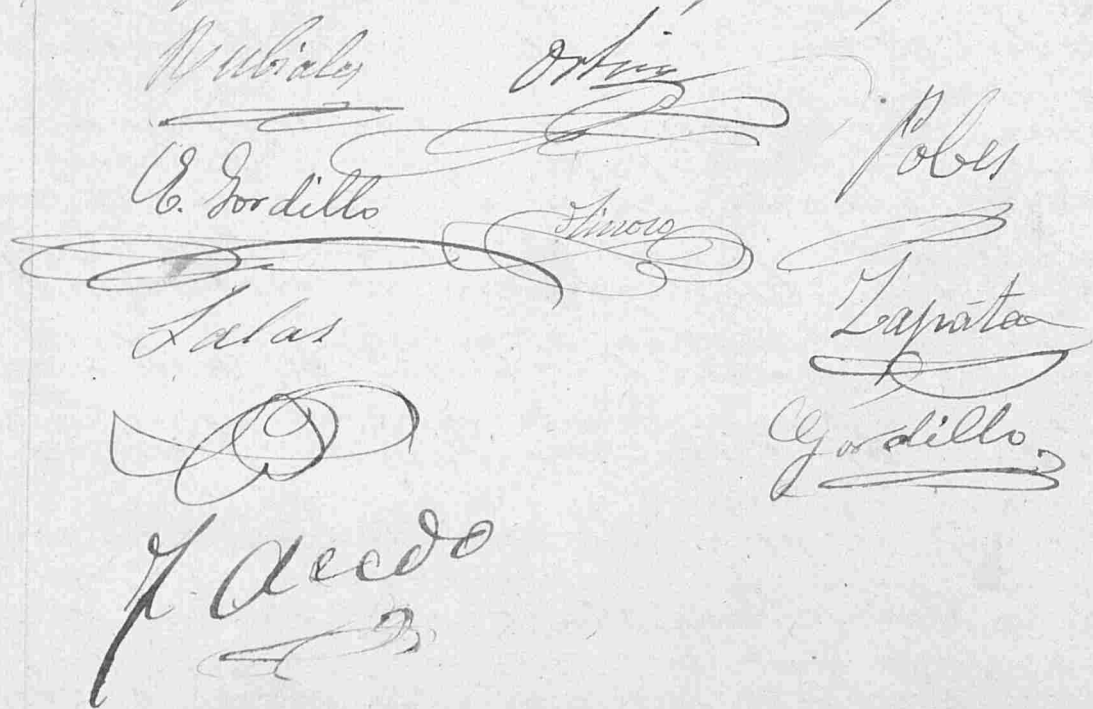 Rubiales
Ortiz
Pobes
E. Gordillo
Zapata
Salas
Gordillo
F. Acedo